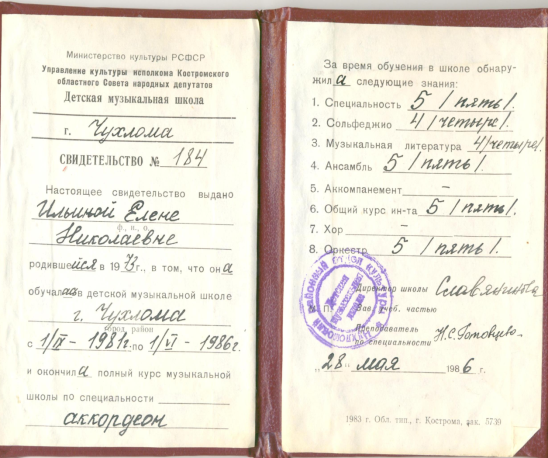 Министерство культуры РСФСР
Управление культуры исполкома Костромского
областного Совета народных депутатов
Детская музыкальная школа
г. Чухлома
СВИДЕТЕЛЬСТВО № 184
Настоящее свидетельство выдано
Ильиной Елене
ф., и., о.
Николаевне
родившейся в 1973 г., в том, что она
обучалась в детской музыкальной школе
г. Чухлома
город, район
с 1/IX - 1981г. по 1/VI - 1986г.
и окончила полный курс музыкальной
школы по специальности
аккордеон
За время обучения в школе обнару-
жила следующие знания:
1. Специальность 5 /пять/.
2. Сольфеджио 4/четыре/.
3. Музыкальная литература 4/четыре/.
4. Ансамбль 5 /пять/.
5. Аккомпанемент –
6. Общий курс ин-та 5 /пять/.
7. Хор –
8. Оркестр 5 /пять/.
Директор школы
М. П. Зав. учеб. частью
Преподаватель
по специальности Н.С.
„28" мая 1986 г.
1983 г. Обл. тип., г. Кострома, зак. 5739